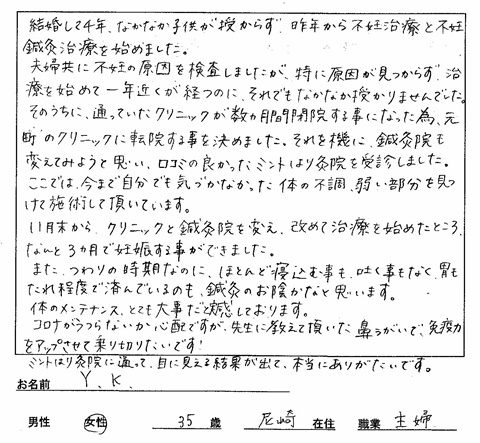 結婚して4年、なかなか子供が授からず、昨年から不妊治療と不妊
鍼灸治療を始めました。
夫婦共に不妊の原因を検査しましたが、特に原因が見つからず、治
療を始めて一年近くが経つのに、それでもなかなか授かりませんでした。
そのうちに、通っていたクリニックが数ヵ月間閉院する事になった為、元
町のクリニックに転院する事を決めました。それを機に、鍼灸院も
変えてみようと思い、口コミの良かったミントはり灸院を受診しました。
ここでは、今まで自分でも気づかなかった体の不調、弱い部分を見つ
けて施術して頂いています。
11月末から、クリニックと鍼灸院を変え、改めて治療を始めたところ、
なんと3カ月で妊娠する事ができました。
また、つわりの時期なのに、ほとんど寝込む事も、吐く事もなく、胃も
たれ程度で済んでいるのも、鍼灸のお陰かなと思います。
体のメンテナンス、とても大事だと感じております。
コロナがうつらないか心配ですが、先生に教えて頂いた鼻うがいで、免疫力
をアップさせて乗り切りたいです!
ミントはり灸院に通って、目に見える結果が出て、本当にありがたいです。
お名前 Y、K、
男性 女性 35 歳 尼崎 在住 職業 主婦